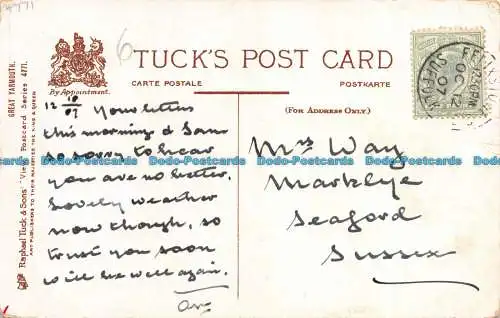 4771
6
TUCK'S POST CARD
By Appointment.
CARTE POSTALE
POSTKARTE
(FOR ADDRESS ONLY.)
GREAT YARMOUTH.
Raphael Tuck & Sons' "View" Postcard Series 4771.
ART PUBLISHERS TO THEIR MAJESTIES THE KING & QUEEN
12 10/07 Your letter
this morning & I am
so sorry to hear
you are no better.
Lovely weather
now though, so
trust you soon
will be well again.
Mrs Way
Marklye
Seaford
Sussex
OC 12
07
SUFFOLK
Postcards